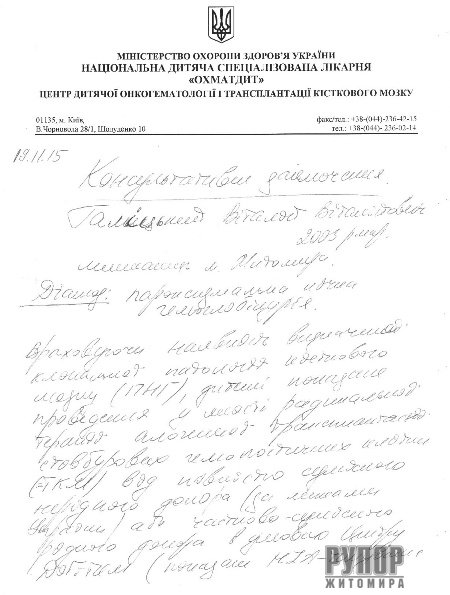 МІНІСТЕРСТВО ОХОРОНИ ЗДОРОВ'Я УКРАЇНИ
НАЦІОНАЛЬНА ДИТЯЧА СПЕЦІАЛІЗОВАНА ЛІКАРНЯ
«ОХМАТДИТ»
ЦЕНТР ДИТЯЧОЇ ОНКОГЕМАТОЛОГІЇ І ТРАНСПЛАНТАЦІЇ КІСТКОВОГО МОЗКУ
01135, м. Київ, факс/тел.: +38-(044)-236-42-15
В.Чорновола 28/1, 10 тел.: +38-(044)- 236-02-14
19.11.15
Консультативне заключення
Віталій Віталійович
2003 р.нар.
мешканець м. Житомира.
Діагноз: пароксизмальна нічна
гемоглобінурія.
Враховуючи наявність визначеної
клональної патології кісткового
мозку (ПНГ), дитині показане
проведення в якості радикальної
терапії алогенної трансплантації
стовбурових гемопоетичних клітин
(ТКМ) від повністю сумісного
нерідного донора (за межами
України) або частково-сумісного
родинного донора в умовах Центру
РУПОР
ЖИТОМИРА